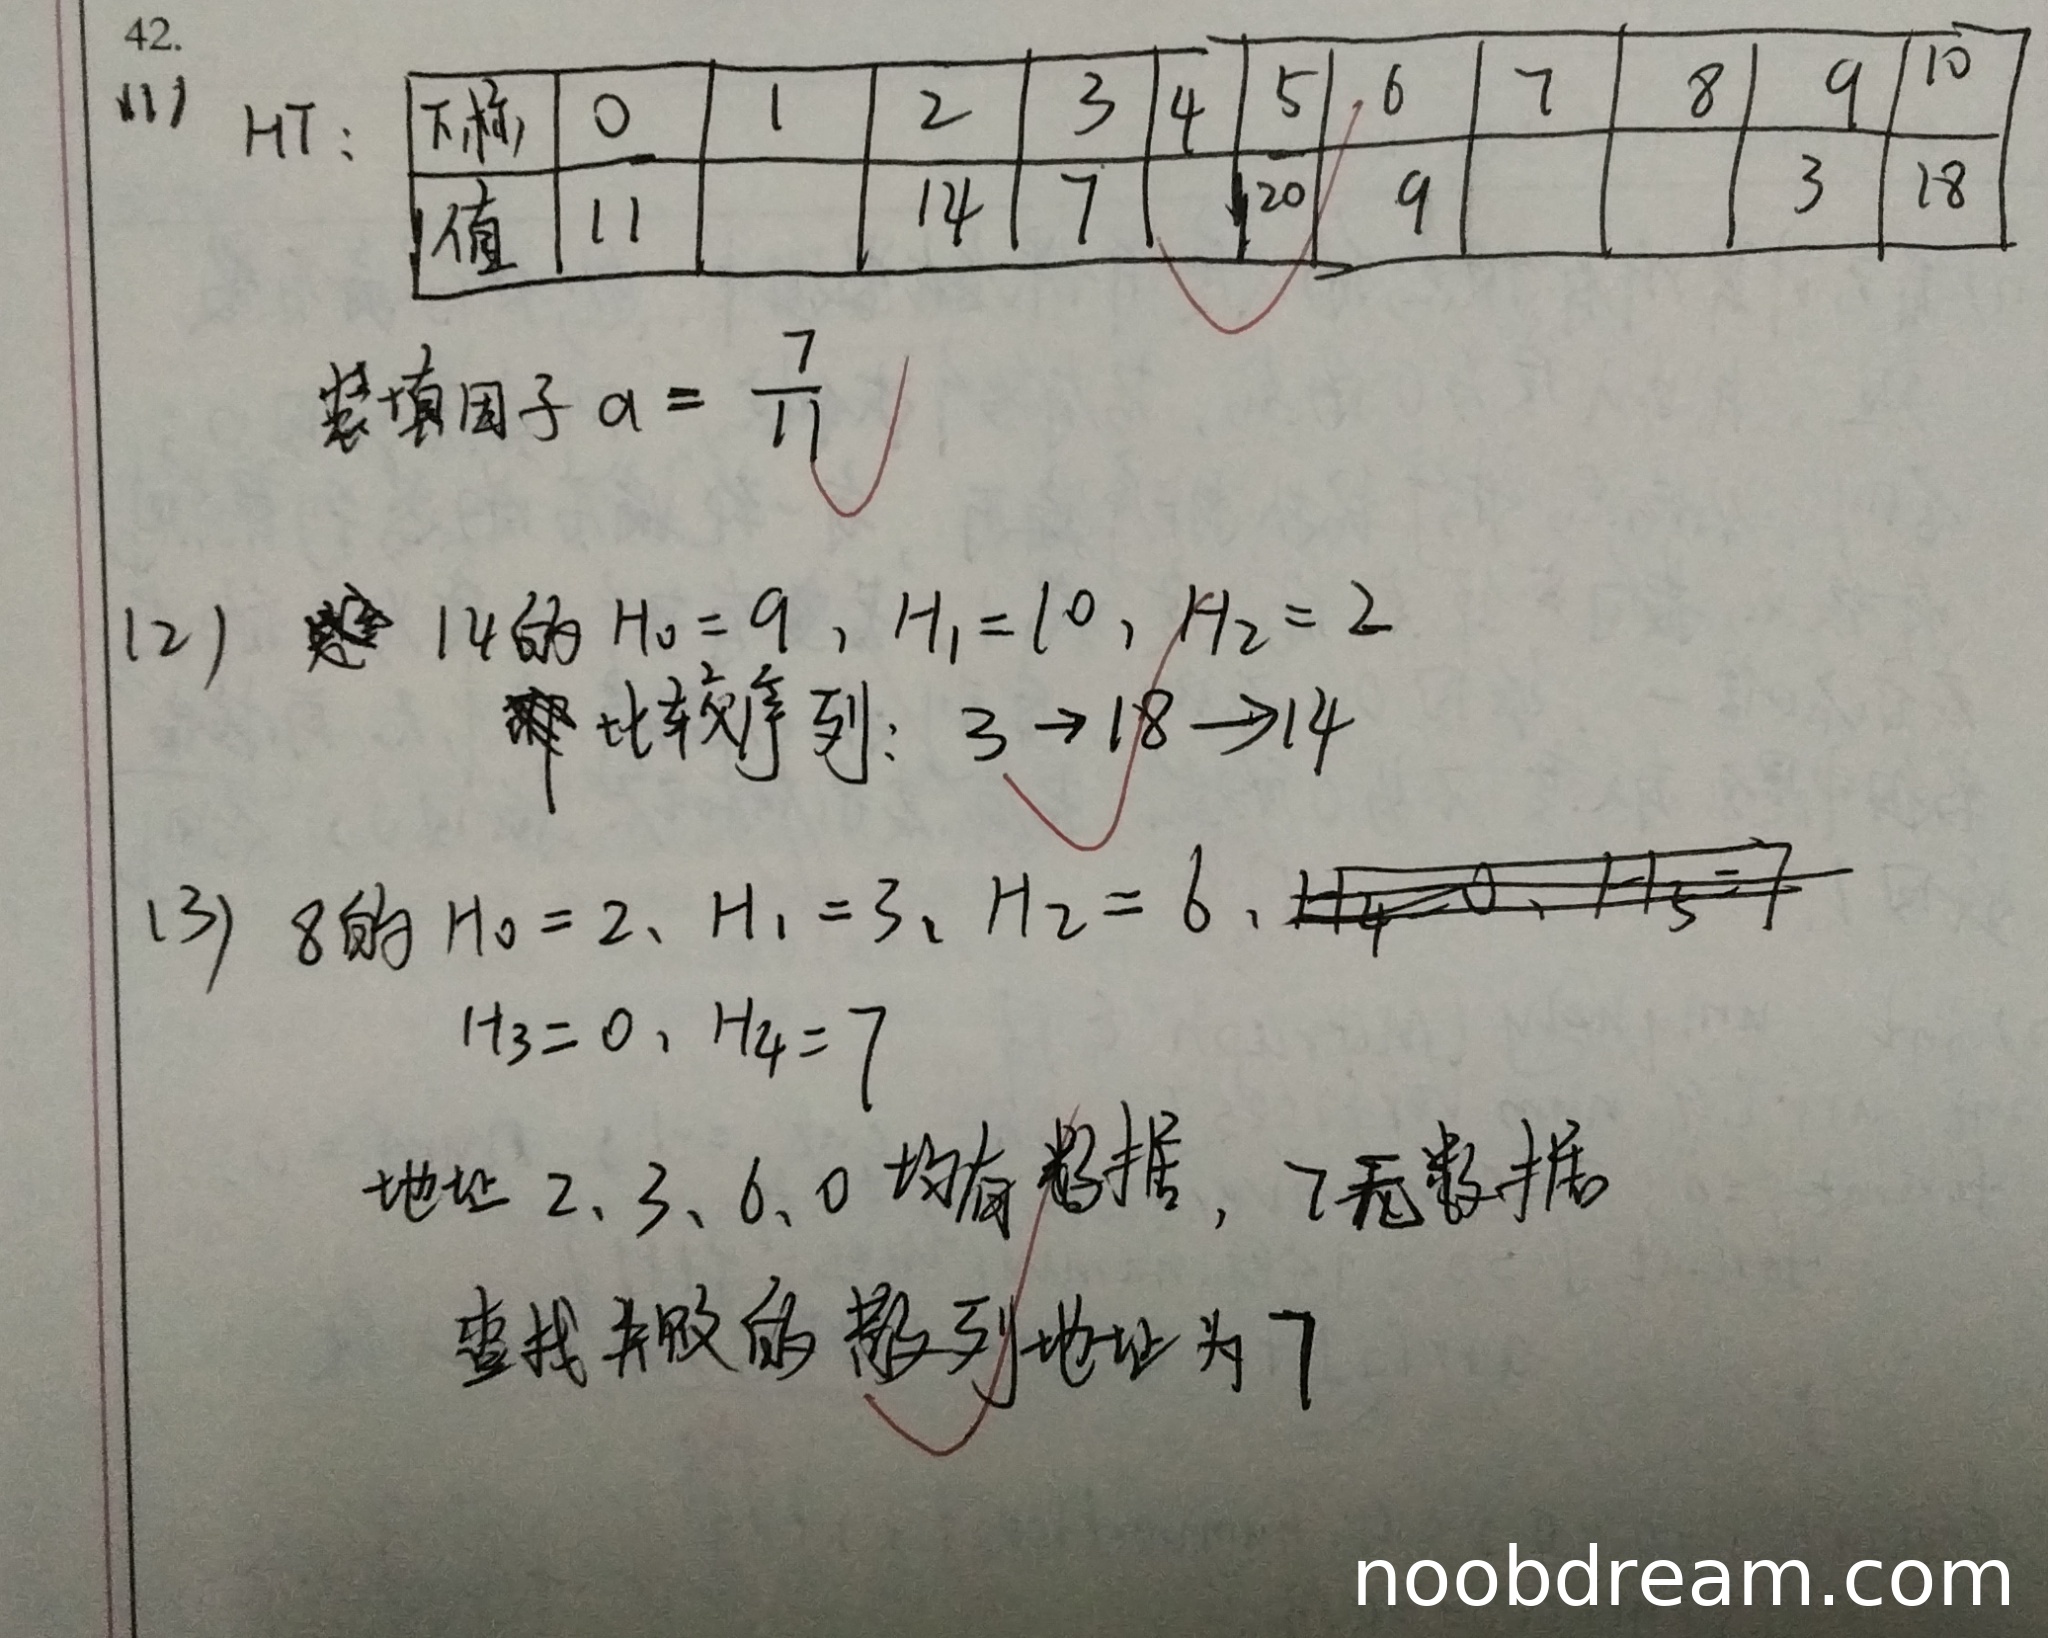 42.
(1) HT: 下标 0 1 2 3 4 5 6 7 8 9 10
值 11 14 7 20 9 3 18
装填因子 α = 7/11
(2) 14的 H₀ = 9, H₁ = 10, H₂ = 2
比较序列: 3 → 18 → 14
(3) 8的 H₀ = 2、H₁ = 3、H₂ = 6、
H₃ = 0、H₄ = 7
地址 2、3、6、0 均有数据, 7无数据
查找失败的散列地址为 7
noobdream.com